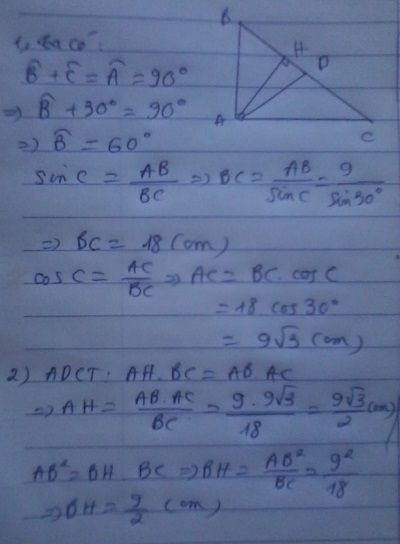 B
H
D
A
C
1, Ta có:
B̂ + Ĉ = Â = 90°
⇒ B̂ + 30° = 90°
⇒ B̂ = 60°
sin C = AB/BC ⇒ BC = AB/sin C = 9/sin 30°
⇒ BC = 18 (cm)
cos C = AC/BC ⇒ AC = BC. cos C
= 18 cos 30°
= 9√3 (cm)
2) ADCT: AH. BC = AB. AC
⇒ AH = AB. AC/BC = 9. 9√3/18 = 9√3/2 (cm)
AB² = BH. BC ⇒ BH = AB²/BC = 9²/18
⇒ BH = 9/2 (cm)